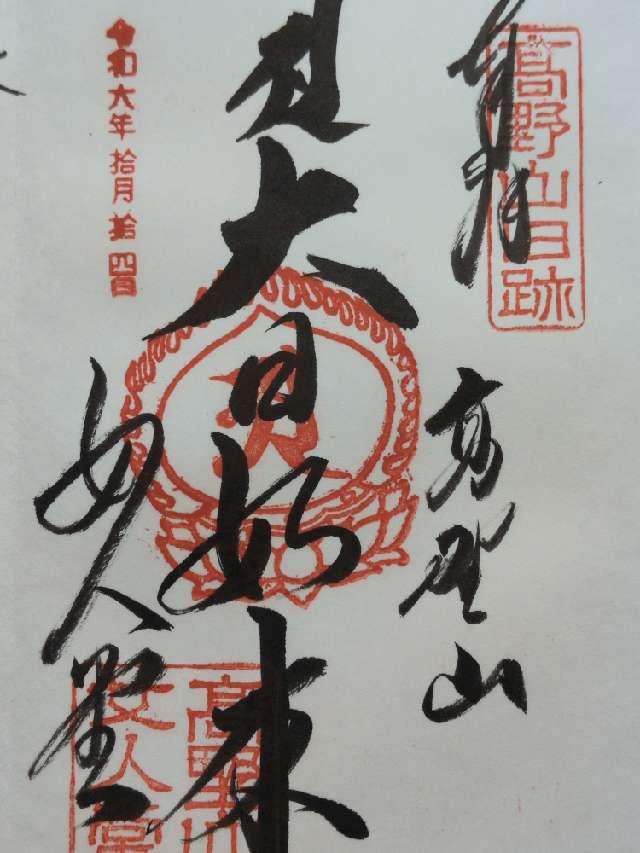 奉拝
高野山旦跡
高野山
大日如来
女人堂
高野山
女人堂
令和六年拾月拾四日